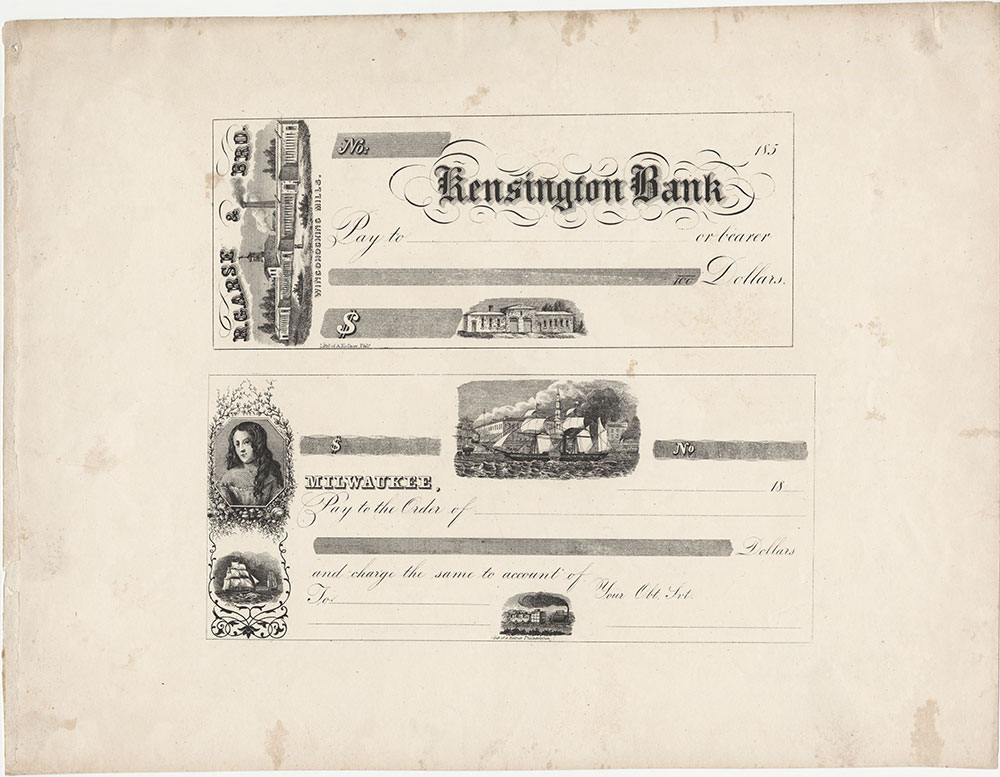 R. GARSE & BRO.
WINGOHOCKING MILLS.
No:
185
Kensington Bank
Pay to or bearer
100 Dollars.
$
Lith. of A. Kollner, Phila.
$
No
MILWAUKEE,
18
Pay to the Order of
Dollars
and charge the same to account of
To
Your Obt. Svt.
Philadelphia